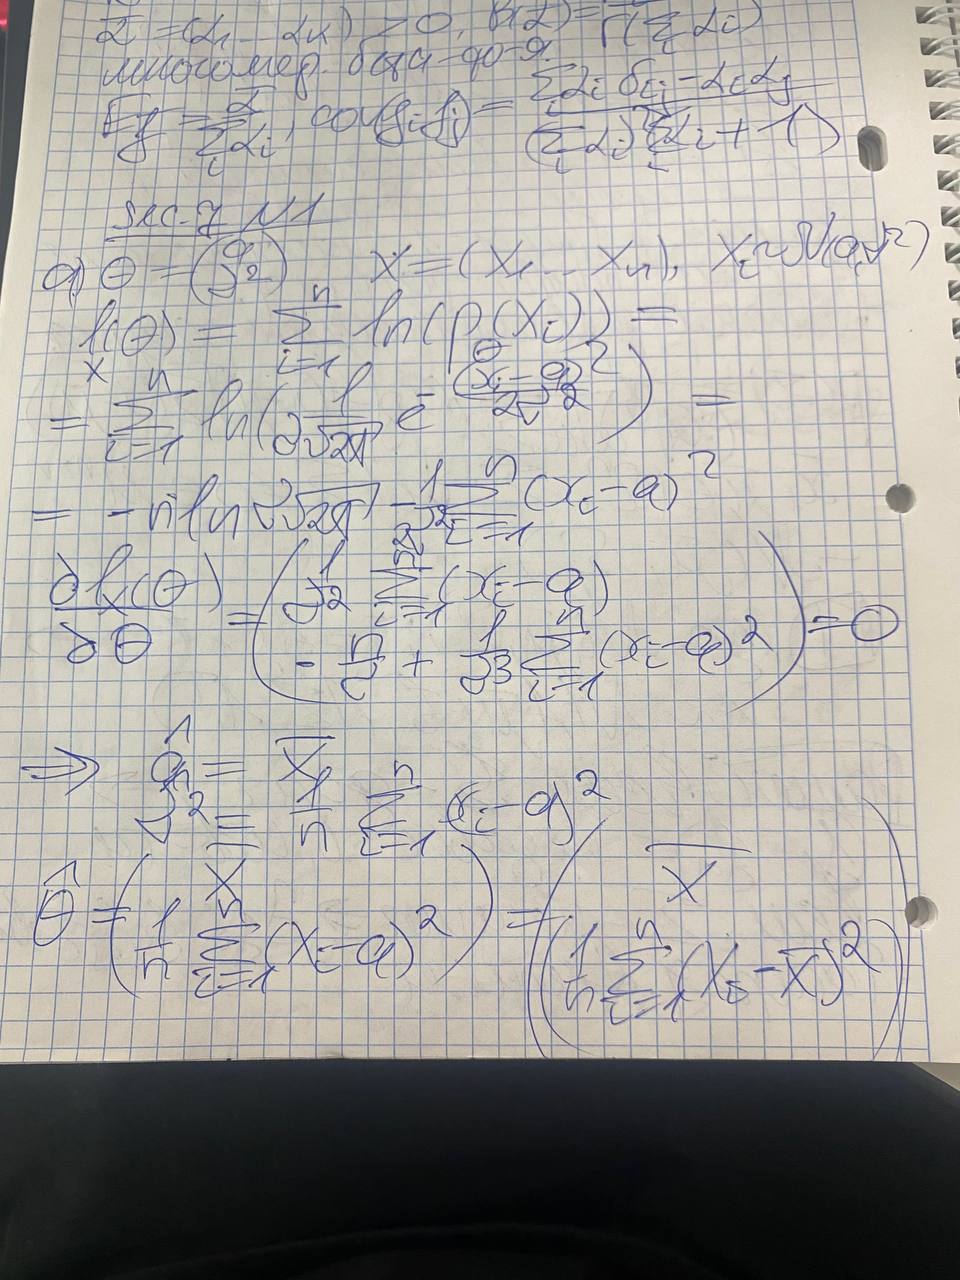 α = (α₁ … αₖ) > 0, B(α) = Γ(Σᵢ αᵢ)
многомер. бета-
Eg = α / Σᵢ αᵢ, cov(gᵢ gⱼ) = (Σ αᵢ δᵢⱼ − αᵢ αⱼ) / ((Σᵢ αᵢ)² (Σᵢ αᵢ + 1))
N1
a) θ = (a σ²) X = (X₁ … Xₙ), Xᵢ ~ N(a, σ²)
lₓ(θ) = Σᵢ₌₁ⁿ ln(p_θ(Xᵢ)) =
= Σᵢ₌₁ⁿ ln(1/(σ√2π) e^−(xᵢ−a)²/2σ²) =
= −n ln σ√2π − 1/2σ² Σᵢ₌₁ⁿ (xᵢ−a)²
∂lₓ(θ)/∂θ = (1/σ² Σᵢ₌₁ⁿ (xᵢ−a)
−n/σ + 1/σ³ Σᵢ₌₁ⁿ (xᵢ−a)²) = 0
⇒ âₙ = X̄
σ² = 1/n Σᵢ₌₁ⁿ (xᵢ−a)²
θ̂ = (X̄ 1/n Σᵢ₌₁ⁿ (Xᵢ−a)²) = (X̄ 1/n Σᵢ₌₁ⁿ (Xᵢ−X̄)²)